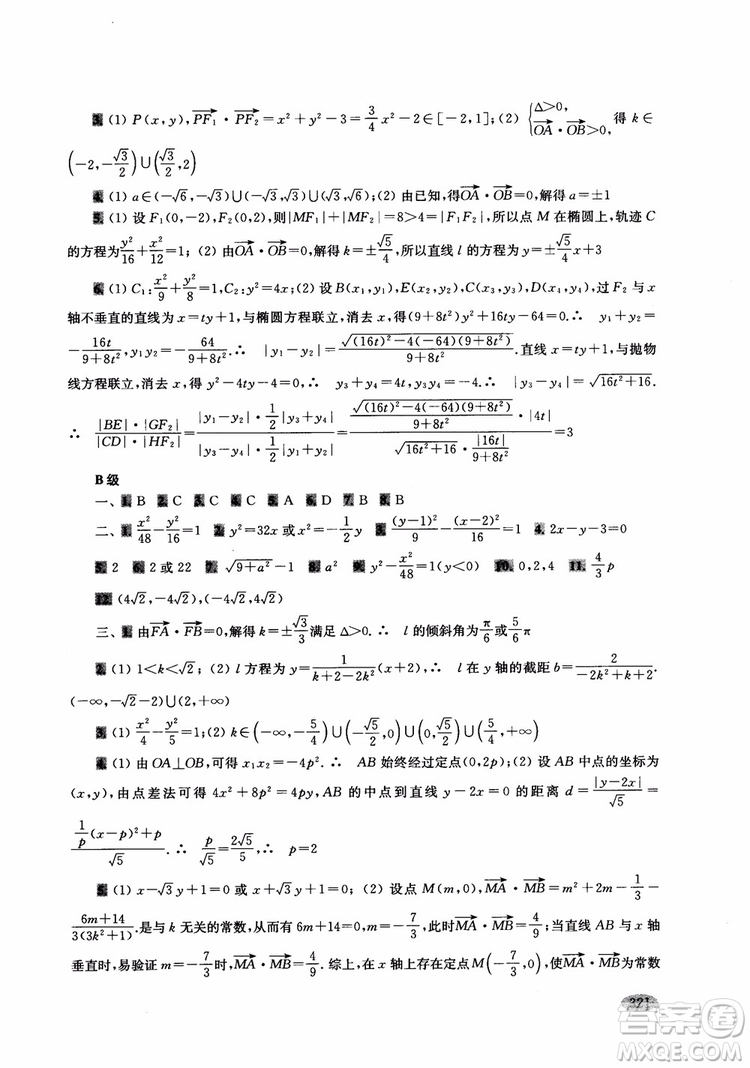 3. (1) P(x,y), $\overrightarrow{PF_1}\cdot\overrightarrow{PF_2}=x^2+y^2-3=\frac{3}{4}x^2-2\in[-2,1]$; (2) $\begin{cases}\Delta>0,\\ \overrightarrow{OA}\cdot\overrightarrow{OB}>0,\end{cases}$ 得 k∈
$\left(-2,-\frac{\sqrt3}{2}\right)\cup\left(\frac{\sqrt3}{2},2\right)$
4. (1) $a\in(-\sqrt6,-\sqrt3)\cup(-\sqrt3,\sqrt3)\cup(\sqrt3,\sqrt6)$; (2) 由已知,得$\overrightarrow{OA}\cdot\overrightarrow{OB}=0$,解得 a=±1
5. (1) 设 $F_1(0,-2),F_2(0,2)$,则$|MF_1|+|MF_2|=8>4=|F_1F_2|$,所以点 M 在椭圆上,轨迹 C
的方程为$\frac{y^2}{16}+\frac{x^2}{12}=1$; (2) 由$\overrightarrow{OA}\cdot\overrightarrow{OB}=0$,解得 $k=\pm\frac{\sqrt5}{4}$,所以直线 l 的方程为 $y=\pm\frac{\sqrt5}{4}x+3$
6. (1) $C_1:\frac{x^2}{9}+\frac{y^2}{8}=1,C_2:y^2=4x$; (2) 设 $B(x_1,y_1),E(x_2,y_2),C(x_3,y_3),D(x_4,y_4)$,过 F₂ 与 x
轴不垂直的直线为 x=ty+1,与椭圆方程联立,消去 x,得$(9+8t^2)y^2+16ty-64=0$.∴ $y_1+y_2=$
$-\frac{16t}{9+8t^2},y_1y_2=-\frac{64}{9+8t^2}$.∴ $|y_1-y_2|=\frac{\sqrt{(16t)^2-4(-64)(9+8t^2)}}{9+8t^2}$.直线 x=ty+1,与抛物
线方程联立,消去 x,得 $y^2-4ty-4=0$,∴ $y_3+y_4=4t,y_3y_4=-4$.∴ $|y_3-y_4|=\sqrt{16t^2+16}$.
∴ $\frac{|BE|\cdot|GF_2|}{|CD|\cdot|HF_2|}=\frac{|y_1-y_2|\cdot\frac12|y_3+y_4|}{|y_3-y_4|\cdot\frac12|y_1+y_2|}=\frac{\frac{\sqrt{(16t)^2-4(-64)(9+8t^2)}}{9+8t^2}\cdot|4t|}{\sqrt{16t^2+16}\cdot\frac{|16t|}{9+8t^2}}=3$
B 级
一、1. B 2. C 3. C 4. C 5. A 6. D 7. B 8. B
二、1. $\frac{x^2}{48}-\frac{y^2}{16}=1$ 2. $y^2=32x$ 或 $x^2=-\frac12y$ 3. $\frac{(y-1)^2}{9}-\frac{(x-2)^2}{16}=1$ 4. 2x-y-3=0
5. 2 6. 2 或 22 7. $\sqrt{9+a^2}-1$ 8. $a^2$ 9. $y^2-\frac{x^2}{48}=1(y<0)$ 10. 0,2,4 11. $\frac43p$
12. $(4\sqrt2,-4\sqrt2),(4\sqrt2,4\sqrt2)$
三、1. 由$\overrightarrow{FA}\cdot\overrightarrow{FB}=0$,解得 $k=\pm\frac{\sqrt3}{3}$满足 Δ>0.∴ l 的倾斜角为$\frac{\pi}{6}$或$\frac56\pi$
2. (1) $1<k<\sqrt2$; (2) l 方程为 $y=\frac{1}{k+2-2k^2}(x+2)$,∴ l 在 y 轴的截距 $b=\frac{2}{-2k^2+k+2}\in$
$(-\infty,-\sqrt2-2)\cup(2,+\infty)$
3. (1) $\frac{x^2}{4}-\frac{y^2}{5}=1$; (2) $k\in\left(-\infty,-\frac54\right)\cup\left(-\frac{\sqrt5}{2},0\right)\cup\left(0,\frac{\sqrt5}{2}\right)\cup\left(\frac54,+\infty\right)$
4. (1) 由 OA⊥OB,可得 $x_1x_2=-4p^2$.∴ AB 始终经过定点(0,2p); (2) 设 AB 中点的坐标为
(x,y),由点差法可得 $4x^2+8p^2=4py$,AB 的中点到直线 y-2x=0 的距离 $d=\frac{|y-2x|}{\sqrt5}=$
$\frac{\frac1p(x-p)^2+p}{\sqrt5}$.∴ $\frac{p}{\sqrt5}=\frac{2\sqrt5}{5}$.∴ p=2
5. (1) $x-\sqrt3y+1=0$ 或 $x+\sqrt3y+1=0$; (2) 设点 M(m,0),$\overrightarrow{MA}\cdot\overrightarrow{MB}=m^2+2m-\frac13-$
$\frac{6m+14}{3(3k^2+1)}$.是与 k 无关的常数,从而有 6m+14=0,$m=-\frac73$,此时$\overrightarrow{MA}\cdot\overrightarrow{MB}=\frac49$;当直线 AB 与 x 轴
垂直时,易验证 $m=-\frac73$时,$\overrightarrow{MA}\cdot\overrightarrow{MB}=\frac49$.综上,在 x 轴上存在定点 $M\left(-\frac73,0\right)$,使$\overrightarrow{MA}\cdot\overrightarrow{MB}$为常数
321
答案圈
MXQE.COM